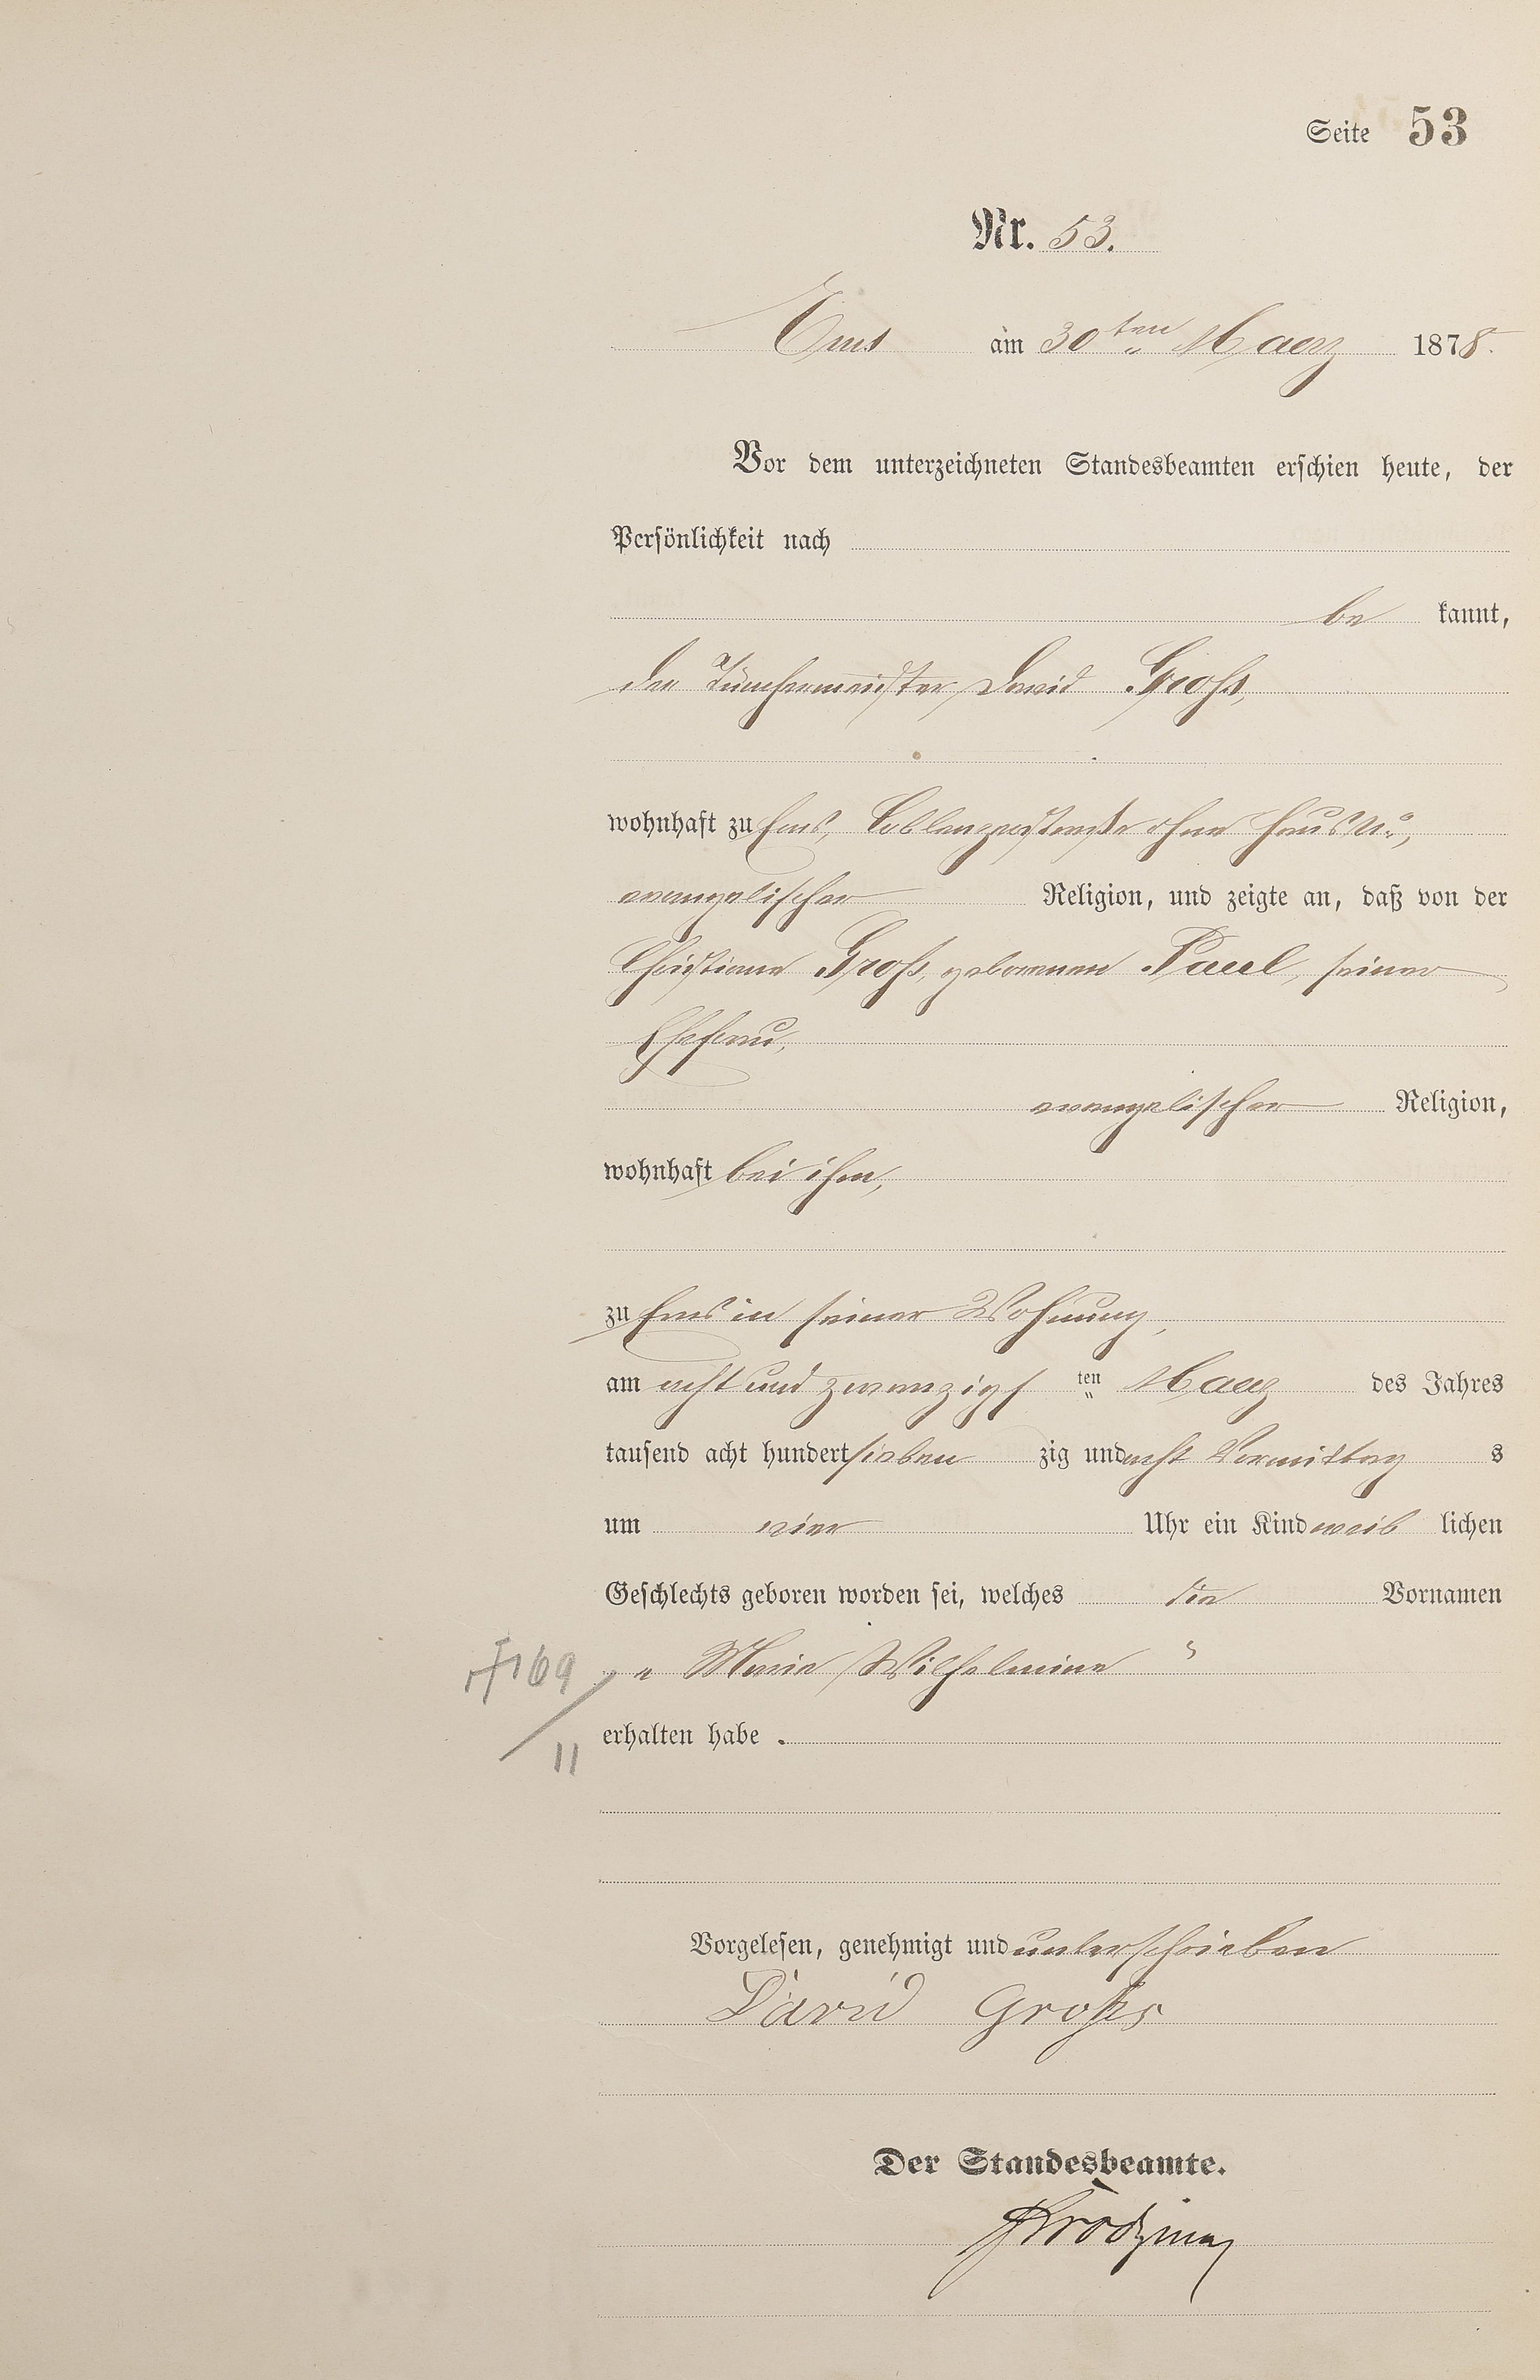 Seite 53
Nr. 53.
Ems am 30ten Maerz 1878.
Vor dem unterzeichneten Standesbeamten erschien heute, der
Persönlichkeit nach
be kannt,
der Tünchermeister David Groß,
wohnhaft zu Ems, Coblenzerstraße ohne Haus No,
evangelischer Religion, und zeigte an, daß von der
Christiane Groß, geborenen Paul, seiner
Ehefrau,
evangelischer Religion,
wohnhaft bei ihm,
zu Ems in seiner Wohnung,
am acht und zwanzigs ten Maerz des Jahres
tausend acht hundert sieben zig und acht Vormittag s
um vier Uhr ein Kind weib lichen
Geschlechts geboren worden sei, welches die Vornamen
„ Marie Wilhelmine "
69
11
erhalten habe .
Vorgelesen, genehmigt und unterschrieben
David Groß
Der Standesbeamte.